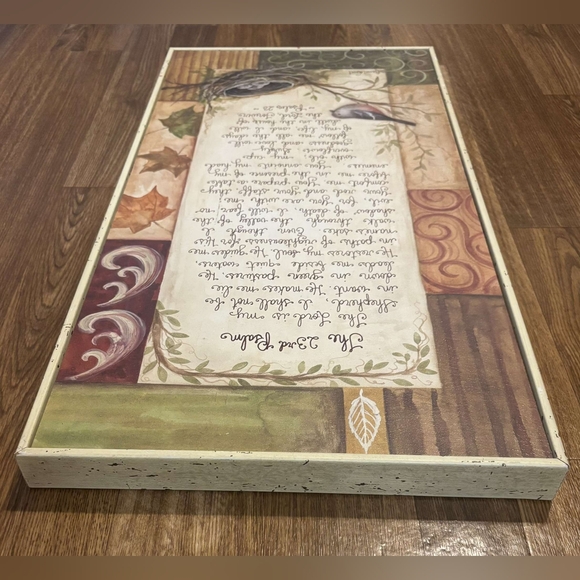 The 23rd Psalm
The Lord is my
Shepherd, I shall not be
in want. He makes me lie
down in green pastures, He
leads me beside quiet waters,
He restores my soul. He guides me
in paths of righteousness for His
name's sake. Even though I
walk through the valley of the
shadow of death, I will fear no
evil, for you are with me;
your rod and your staff, they
comfort me. You prepare a table
before me in the presence of my
enemies. You anoint my head
with oil; my cup
overflows. Surely
goodness and love will
follow me all the days
of my life, and I will
dwell in the house of
the Lord forever.
~ Psalm 23 ~